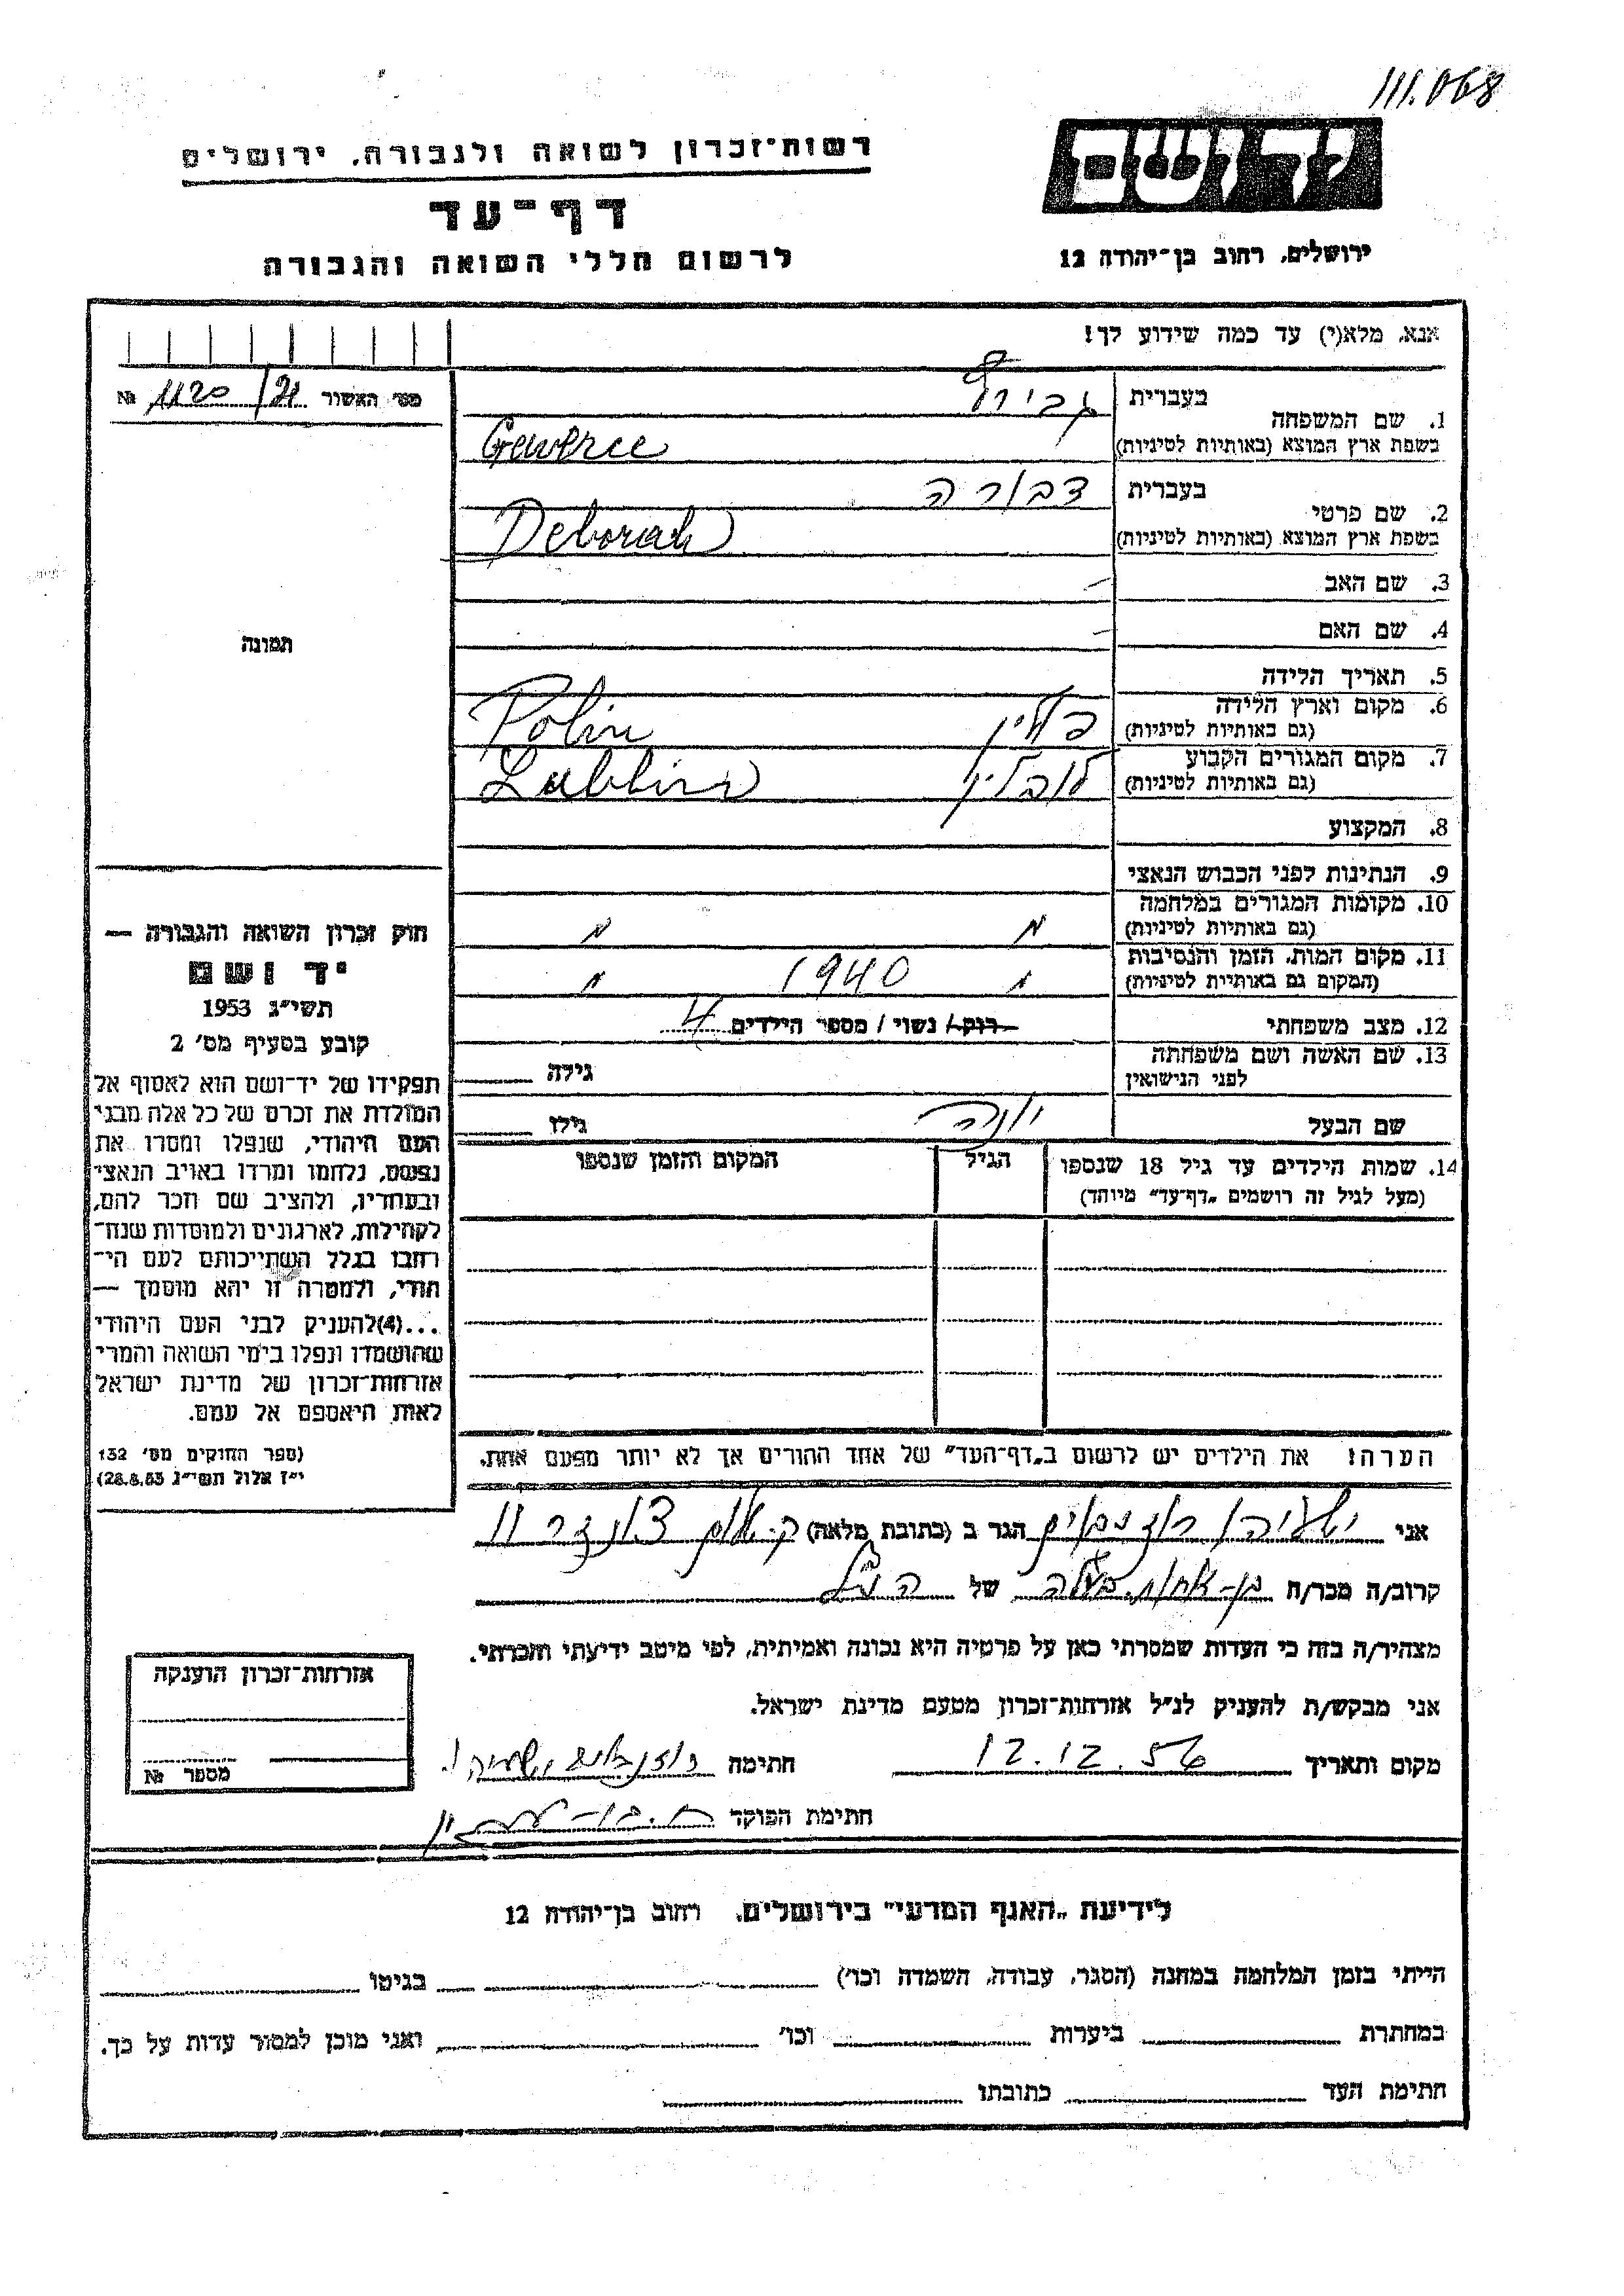 111.068
רשות־זכרון לשואה ולגבורה, ירושלים
ידושם
דף־עד
ירושלים, רחוב בן־יהודה 12
לרשום חללי השואה והגבורה
אנא, מלא(י) עד כמה שידוע לך!
מס׳ האשור 21/1120 №
1. שם המשפחה
בעברית
בשפת ארץ המוצא (באותיות לטיניות)
2. שם פרטי
בעברית דבורה
בשפת ארץ המוצא (באותיות לטיניות) Deborah
3. שם האב -
4. שם האם -
5. תאריך הלידה
6. מקום וארץ הלידה פולין Polin
(גם באותיות לטיניות)
7. מקום המגורים הקבוע לובלין Lublin
(גם באותיות לטיניות)
8. המקצוע
9. הנתינות לפני הכבוש הנאצי
10. מקומות המגורים במלחמה " "
(גם באותיות לטיניות)
11. מקום המות, הזמן והנסיבות " 1940 "
(המקום גם באותיות לטיניות)
12. מצב משפחתי רוק / נשוי / מספר הילדים 4
13. שם האשה ושם משפחתה
לפני הנישואין
גילה
שם הבעל יונה גילו
14. שמות הילדים עד גיל 18 שנספו הגיל המקום והזמן שנספו
(מעל לגיל זה רושמים „דף־עד״ מיוחד)
תמונה
חוק זכרון השואה והגבורה —
יד ושם
תשי״ג 1953
קובע בסעיף מס׳ 2
תפקידו של יד־ושם הוא לאסוף אל
המולדת את זכרם של כל אלה מבני
העם היהודי, שנפלו ומסרו את
נפשם, נלחמו ומרדו באויב הנאצי
ובעוזריו, ולהציב שם וזכר להם,
לקהילות, לארגונים ולמוסדות שנח־
רבו בגלל השתייכותם לעם הי־
הודי, ולמטרה זו יהא מוסמך —
...(4)להעניק לבני העם היהודי
שהושמדו ונפלו בימי השואה והמרי
אזרחות־זכרון של מדינת ישראל
לאות היאספם אל עמם.
(ספר החוקים מס׳ 132
י״ז אלול תשי״ג 28.8.53)
הערה! את הילדים יש לרשום ב„דף־העד״ של אחד ההורים אך לא יותר מפעם אחת.
אני ישעיהו רוזנבוים הגר ב (כתובת מלאה)
קרוב/ה מכר/ה בן-אחות בעלה של הנ״ל
מצהיר/ה בזה כי העדות שמסרתי כאן על פרטיה היא נכונה ואמיתית, לפי מיטב ידיעתי והכרתי.
אני מבקש/ת להעניק לנ״ל אזרחות־זכרון מטעם מדינת ישראל.
מקום ותאריך 12.12.56 חתימה רוזנבוים ישעיהו
חתימת הפוקד
אזרחות־זכרון הוענקה
מספר №
לידיעת „האגף המדעי״ בירושלים, רחוב בן־יהודה 12
הייתי בזמן המלחמה במחנה (הסגר, עבודה, השמדה וכו׳) בגיטו
במחתרת ביערות וכו׳ ואני מוכן למסור עדות על כך.
חתימת העד כתובתו